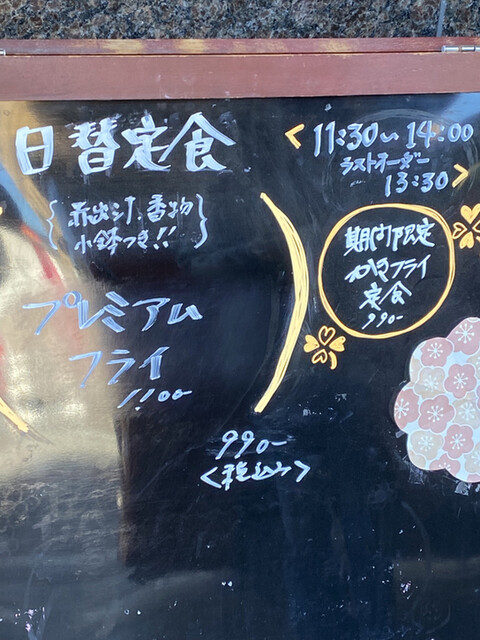 日替定食
{赤出汁、香物
小鉢つき!!}
プレミアム
フライ
1100-
990-
<税込み>
<11:30~14:00
ラストオーダー
13:30>
期間限定
かきフライ
定食
990-